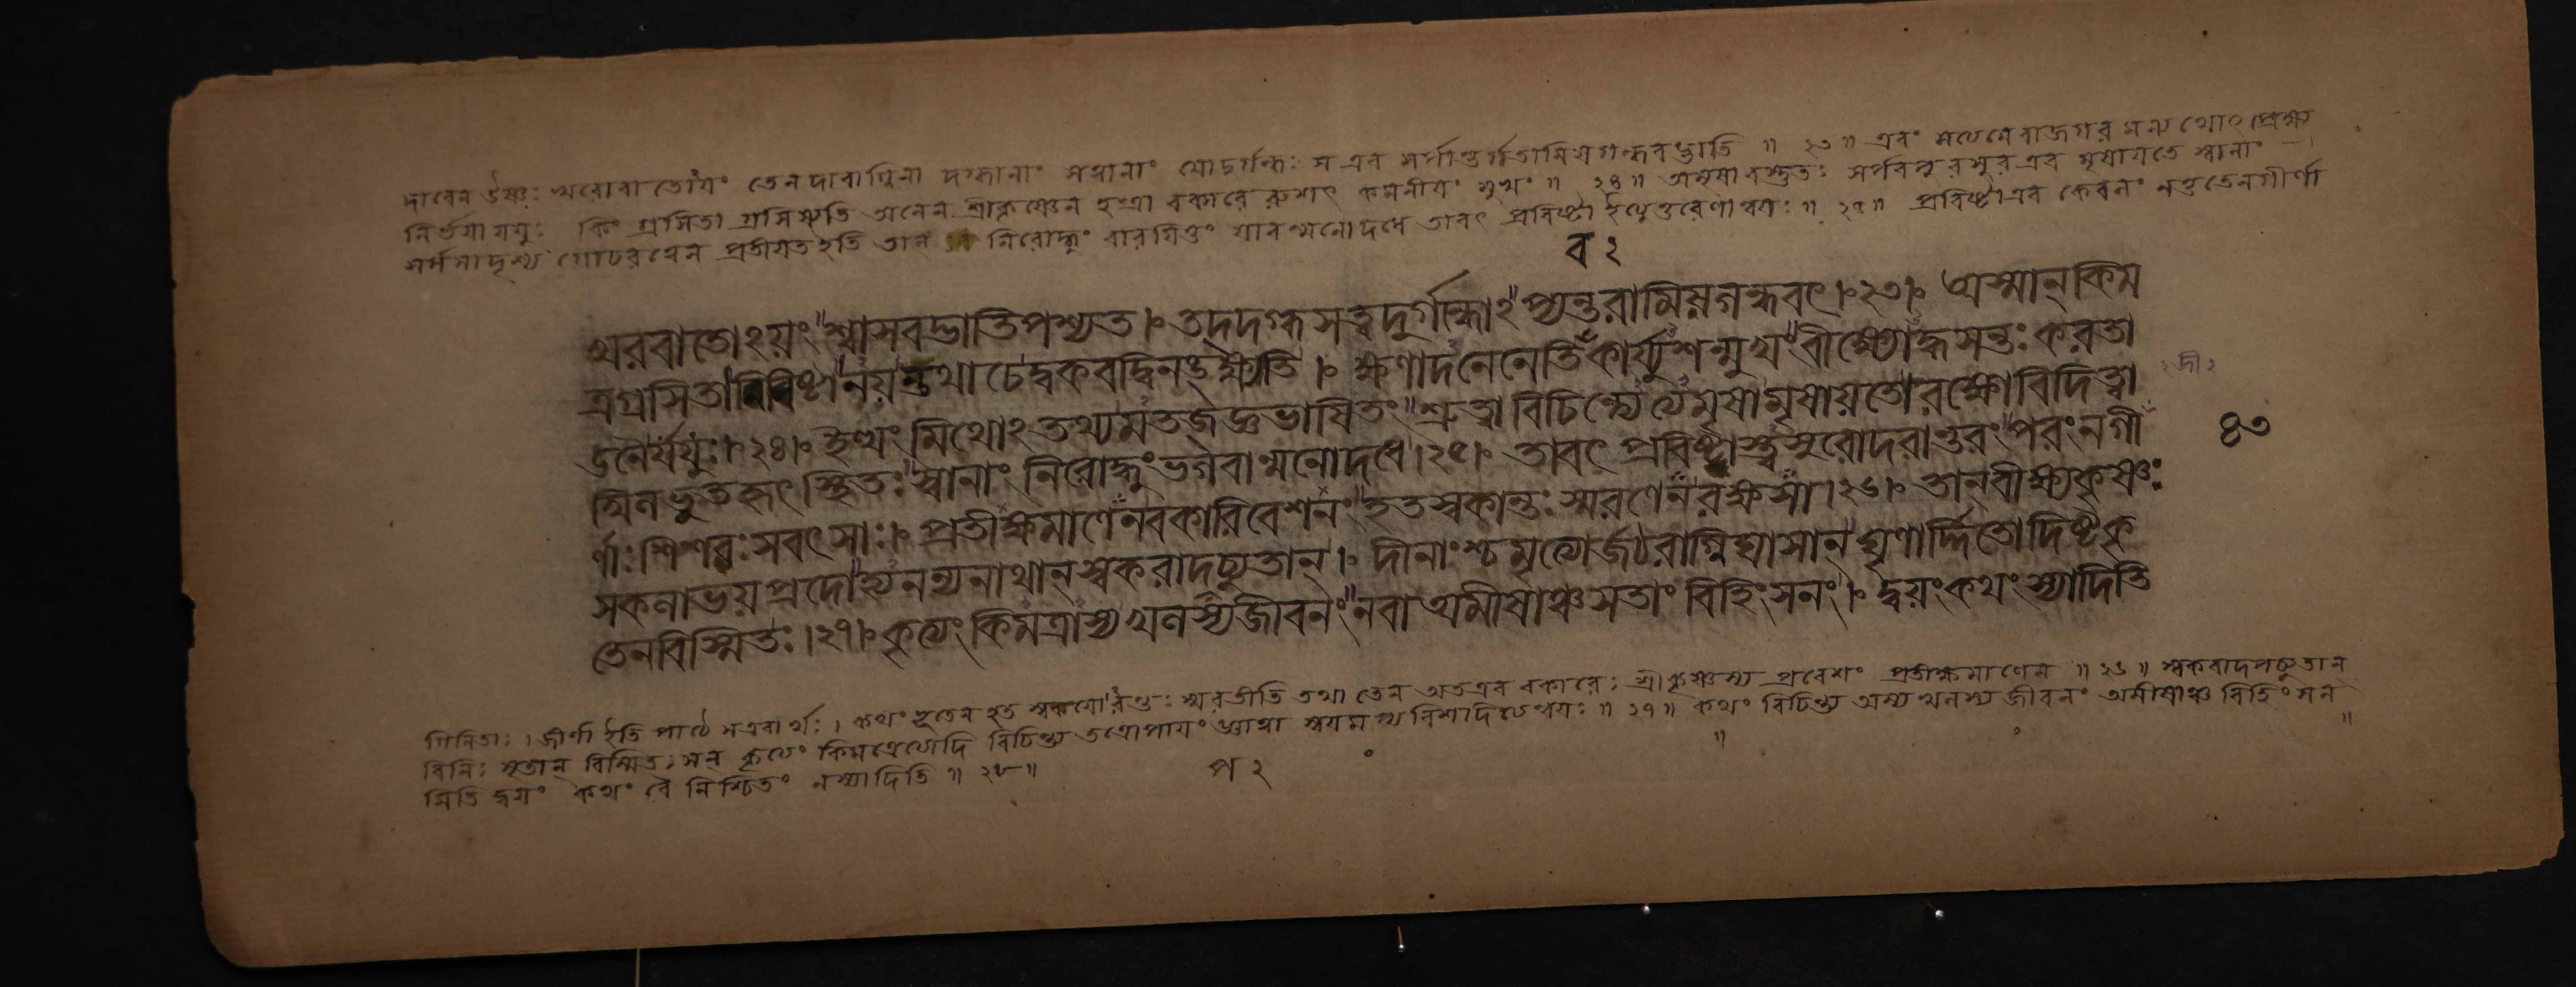 দাবেন উষ্ণঃ খরোবাতোঽয়ং তেনদাবাগ্নিনা দগ্ধানাং সত্বানাং যোদুর্গন্ধঃ সএব সর্পান্তর্গতামিষগন্ধবদ্ভাতি ॥ ২৩ ॥ এবং সত্যমেবাজগর মন্যথোৎপ্রেক্ষ্য
নির্ভয়াযযুঃ কিং গ্রসিতা গ্রসিষ্যতি অনেন শ্রীকৃষ্ণেন হন্ত্রা বকারে রুশৎ কমনীয়ং মুখং ॥ ২৪ ॥ অমৃষাবস্তুতঃ সর্পবপুরসুরএব মৃষায়তে স্বানাং
সর্পসাদৃশ্য গোচরত্বেন প্রতীয়তইতি তান নিরোদ্ধুং বারয়িতুং যাবন্মনোদধে তাবৎ প্রবিষ্টা ইত্যুত্তরেণান্বয়ঃ ॥ ২৫ ॥ প্রবিষ্টাএব কেবলং নতুতেনগীর্ণা
ব ২
খরবাতোঽয়ং॥শ্বাসবদ্ভাতিপশ্যত। তদ্দগ্ধসত্ত্বদুর্গন্ধোঽ॥প্যন্তরামিষগন্ধবৎ।২৩। অস্মান্কিম
ত্রগ্রসিতানিবিষ্টানয়ন্তথাচেদ্বকবদ্বিনঙ্ক্ষ্যতি। ক্ষণাদনেনেতিবকার্য্যুশন্মুখং॥বীক্ষ্যোদ্ধসন্তঃকরতা
ডনৈর্যযুঃ।২৪। ইত্থং মিথোঽতথ্যমতজ্জ্ঞভাষিতং॥শ্রুত্বাবিচিন্ত্যেত্যমৃষামৃষায়তেরক্ষোবিদিত্বা
২দী২
খিলভূতহৃৎস্থিতঃ॥স্বানাং নিরোদ্ধুংভগবান্মনোদধে।২৫। তাবৎ প্রবিষ্টাস্ত্বসুরোদরান্তরং॥পরংনগী
৪৩
র্ণাঃশিশবঃসবৎসাঃ। প্রতীক্ষমাণেনবকারিবেশনং॥হতস্বকান্তঃস্মরণেনরক্ষসা।২৬। তান্বীক্ষ্যকৃষ্ণঃ
সকলাভয়প্রদো॥হ্যনন্যনাথান্স্বকরাদচ্যুতান্। দীনাংশ্চমৃত্যোর্জঠরাগ্নিঘাসান্॥ঘৃণার্দ্দিতোদিষ্টকৃ
তেনবিস্মিতঃ।২৭। কৃত্যং কিমত্রাস্যখলস্যজীবনং॥নবা অমীষাঞ্চসতাং বিহিংসনং। দ্বয়ংকথংস্যাদিতি
গিলিতাঃ। জীর্ণা ইতি পাঠে সএবার্থঃ। কথং ভূতেন হত স্বকয়োরন্তঃ স্মরতীতি তথা তেন অতএব বকারেঃ শ্রীকৃষ্ণস্য প্রবেশং প্রতীক্ষমাণেন ॥ ২৬ ॥ স্বকরাদপচ্যুতান্
বিনিঃসৃতান্ বিস্মিতঃসন্ কৃত্যং কিমত্রেত্যাদি বিচিন্ত্য তত্রোপায়ং জ্ঞাত্বা স্বয়মপ্যবিশদিত্যন্বয়ঃ ॥ ২৭ ॥ কথং বিচিন্ত্য অস্য খলস্য জীবনং অমীষাঞ্চ বিহিংসন
মিতি দ্বয়ং কথং বৈ নিশ্চিতং নস্যাদিতি ॥ ২৮ ॥